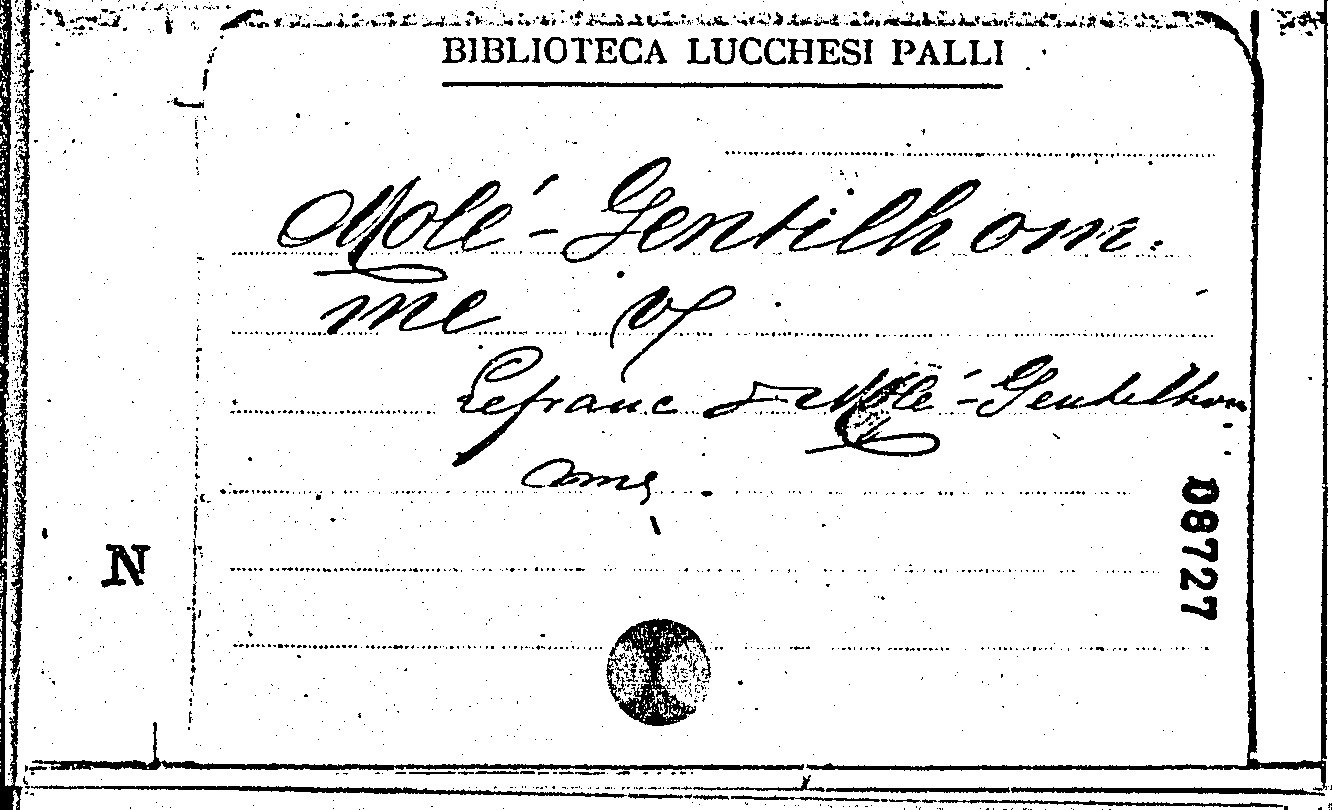 BIBLIOTECA LUCCHESI PALLI
Molé-Gentilhom-
me v
Lefranc & Molé-Gentilhom
me
N
08727